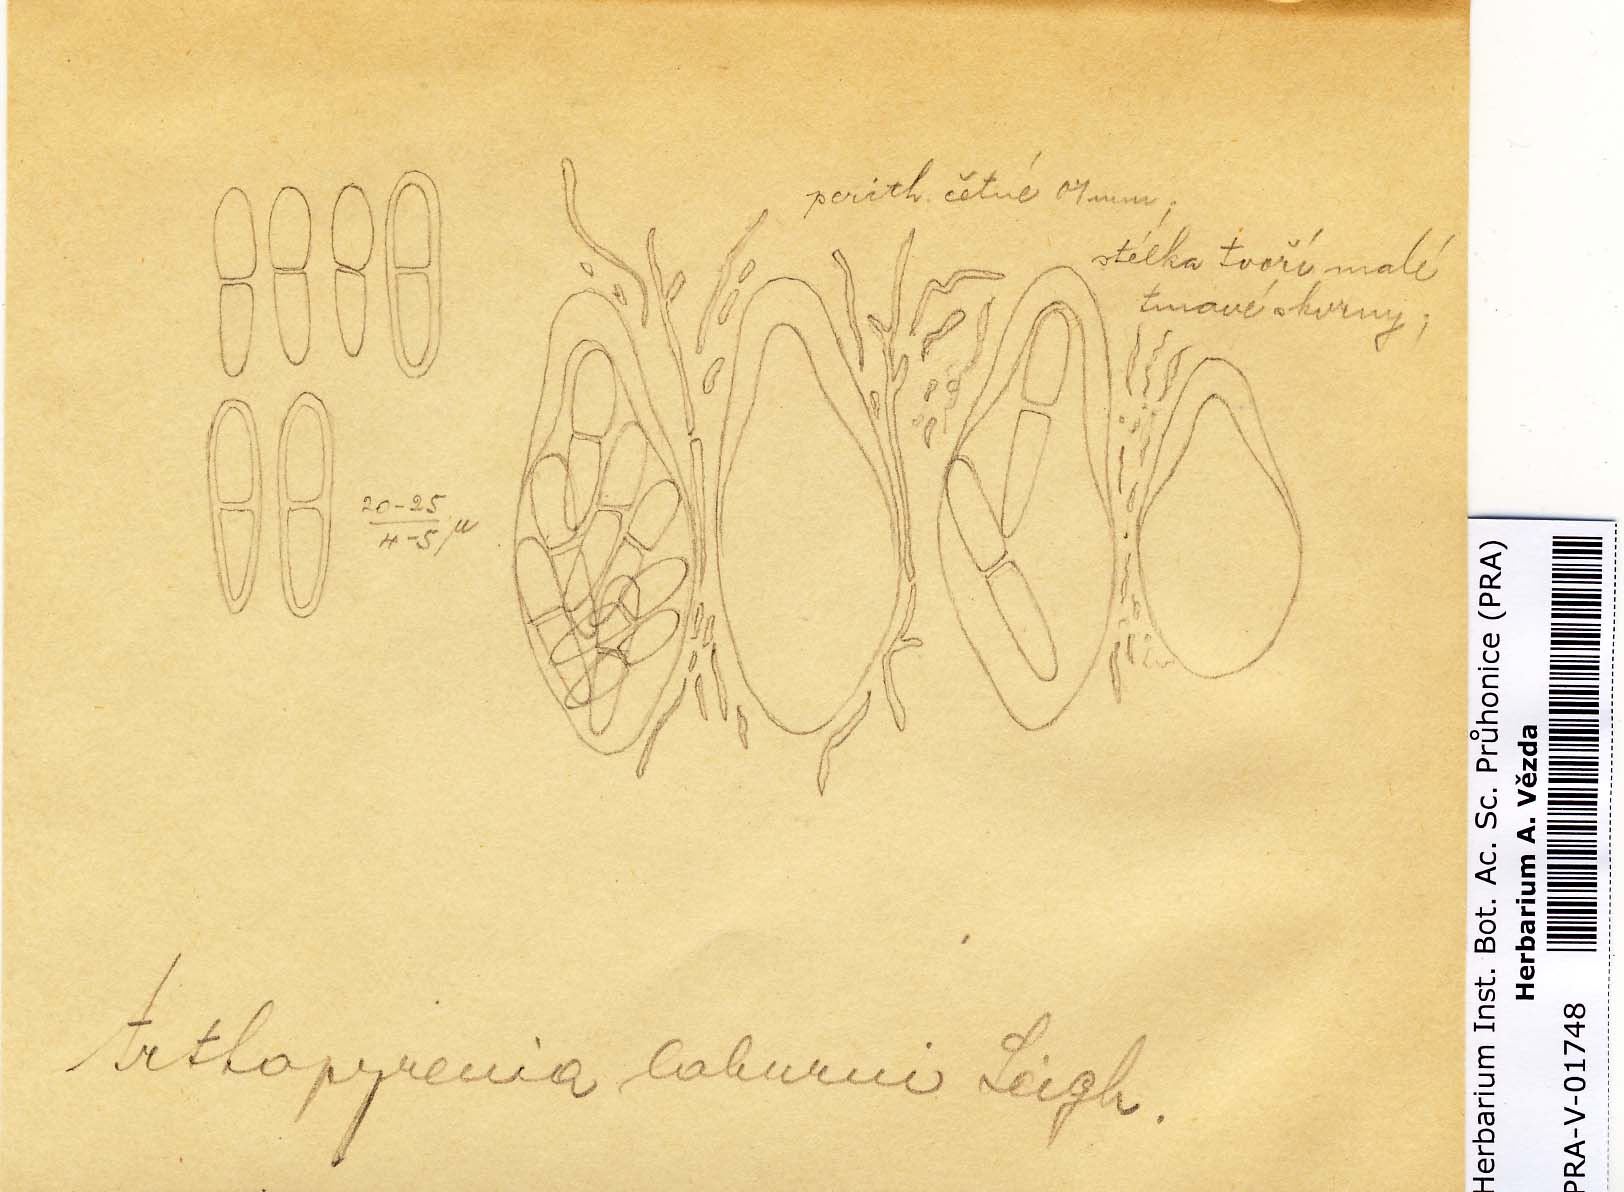 perith. četné 01 mm;
stélka tvoří malé
tmavé skvrny;
20-25
4-5 µ
Arthopyrenia laburni Leigh.
Herbarium Inst. Bot. Ac. Sc. Průhonice (PRA)
Herbarium A. Vězda
PRA-V-01748